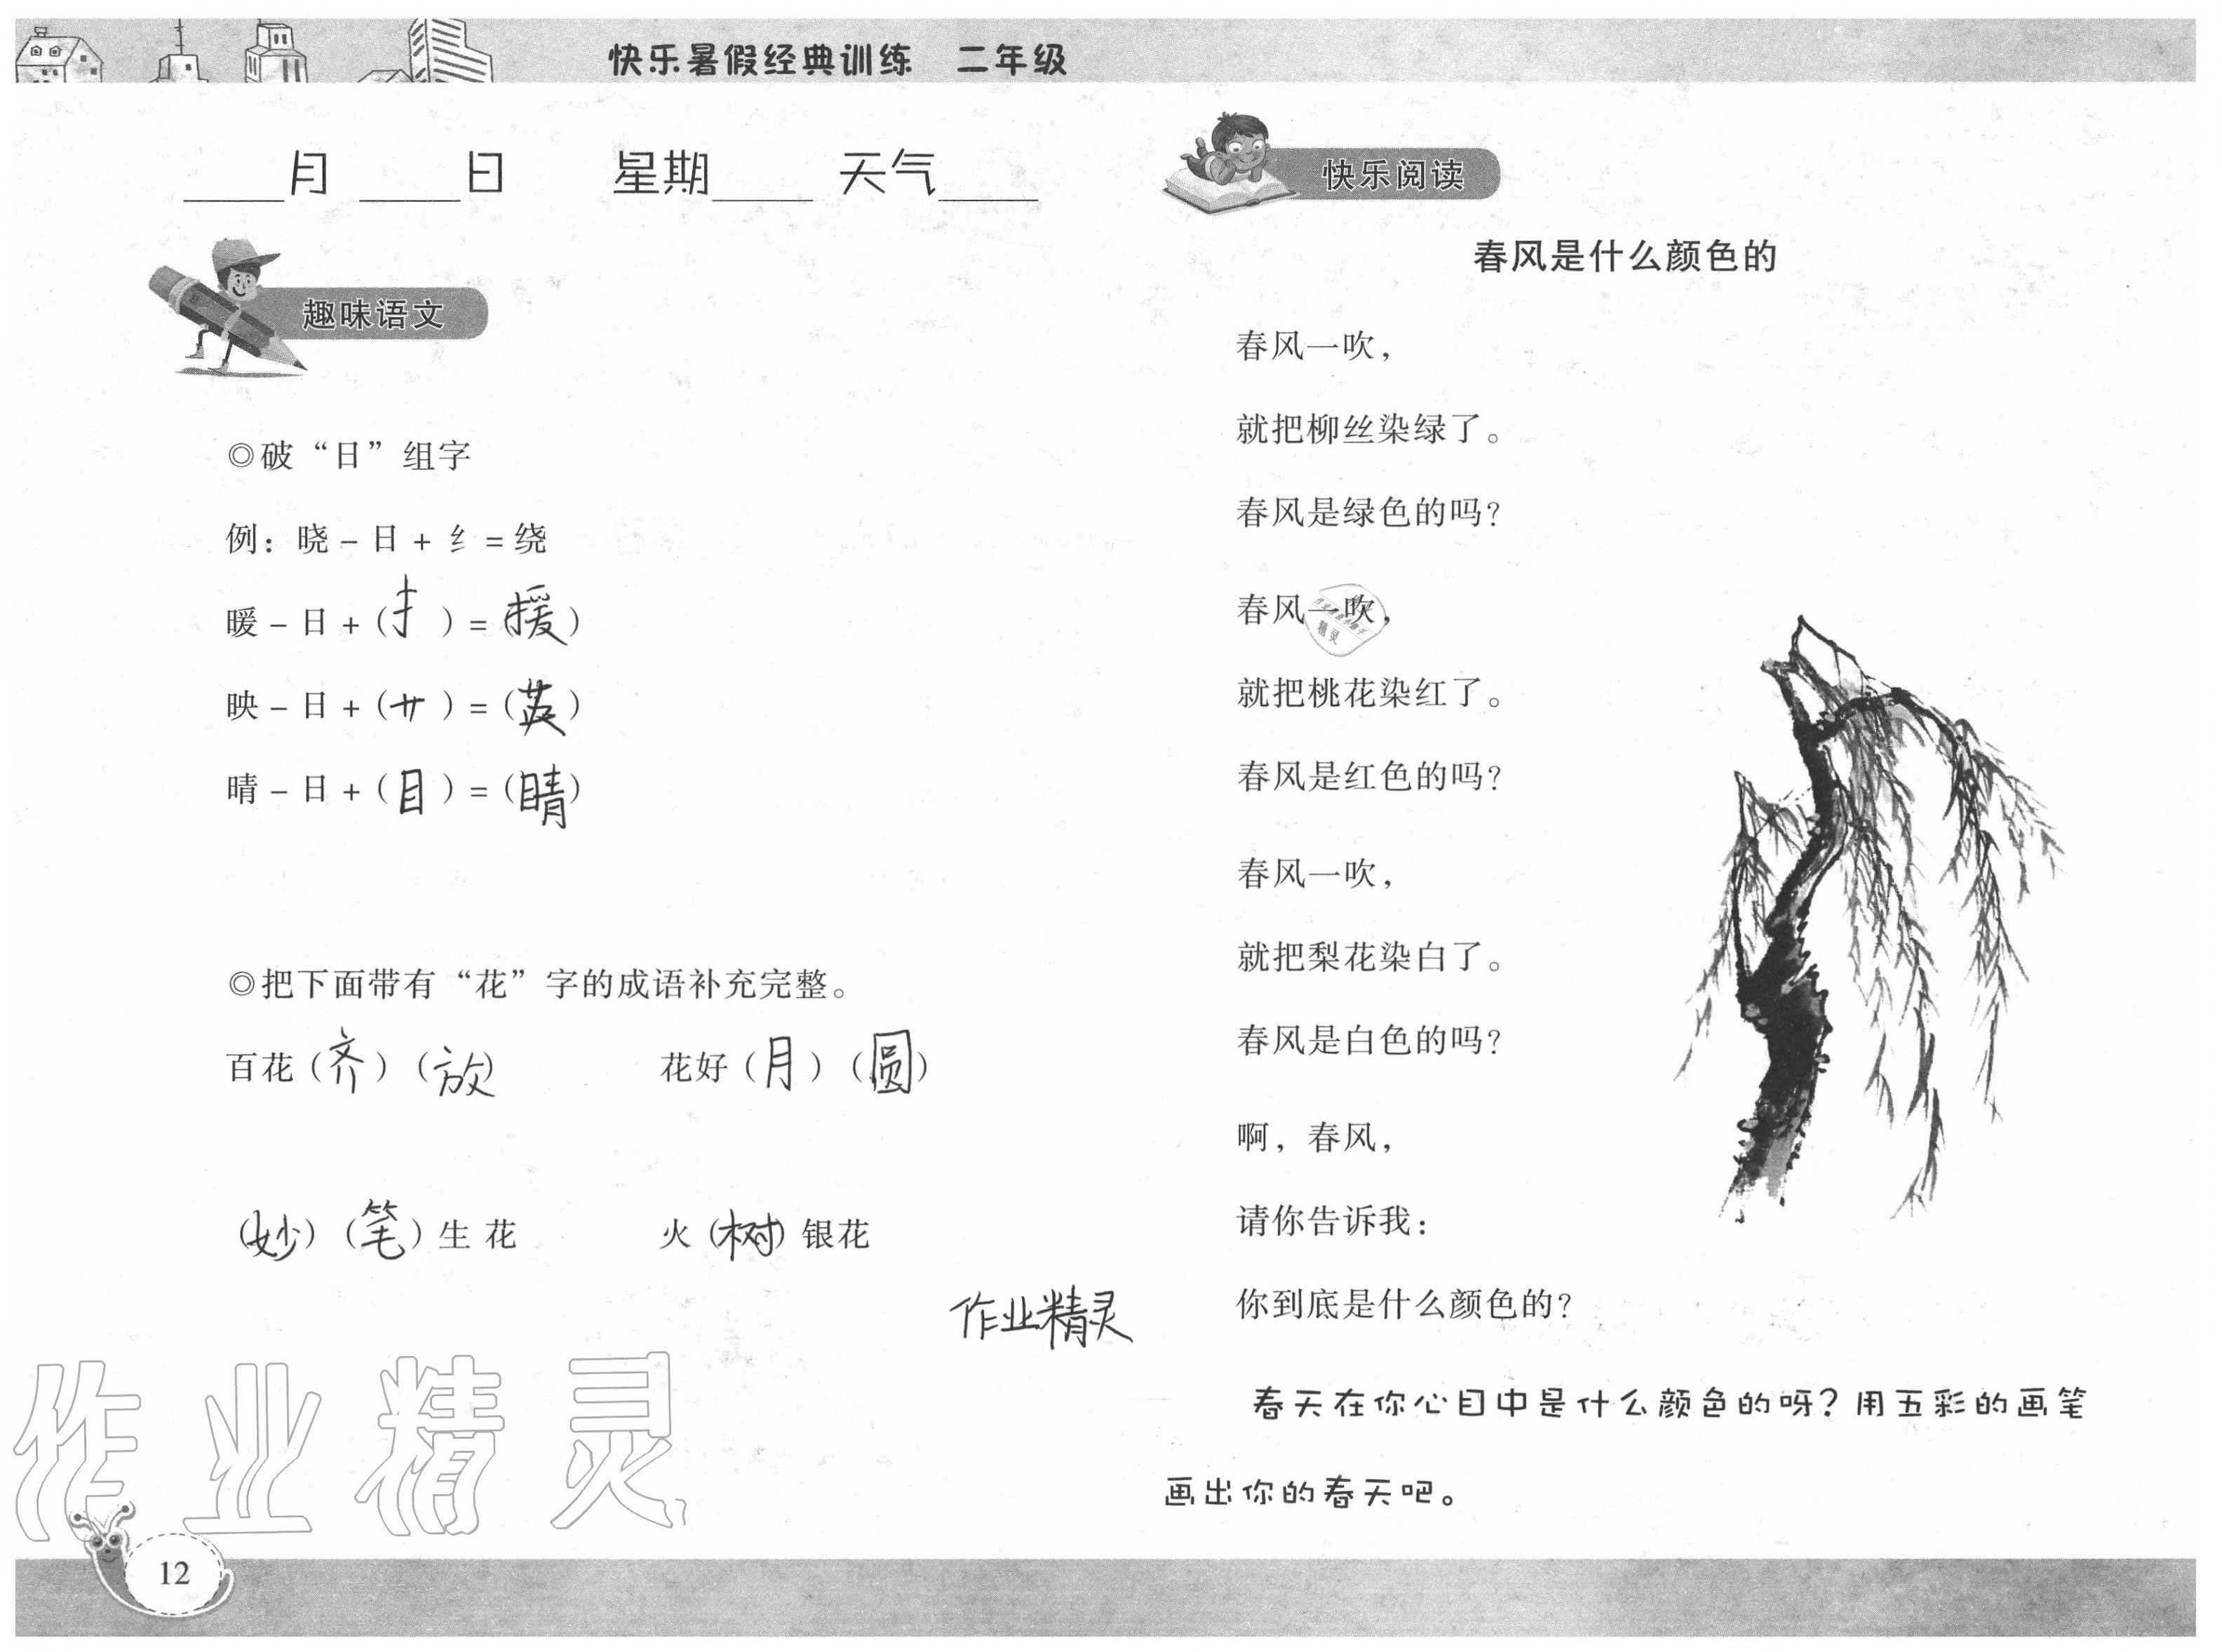 快乐暑假经典训练 二年级
____月 ____日 星期____ 天气____
趣味语文
◎破“日”组字
例：晓－日＋纟＝绕
暖－日＋（扌）＝（援）
映－日＋（艹）＝（英）
晴－日＋（目）＝（睛）
◎把下面带有“花”字的成语补充完整。
百花（齐）（放） 花好（月）（圆）
（妙）（笔）生花 火（树）银花
作业精灵
作业精灵
12
快乐阅读
春风是什么颜色的
春风一吹，
就把柳丝染绿了。
春风是绿色的吗？
春风一吹，
就把桃花染红了。
春风是红色的吗？
春风一吹，
就把梨花染白了。
春风是白色的吗？
啊，春风，
请你告诉我：
你到底是什么颜色的？
春天在你心目中是什么颜色的呀？用五彩的画笔
画出你的春天吧。